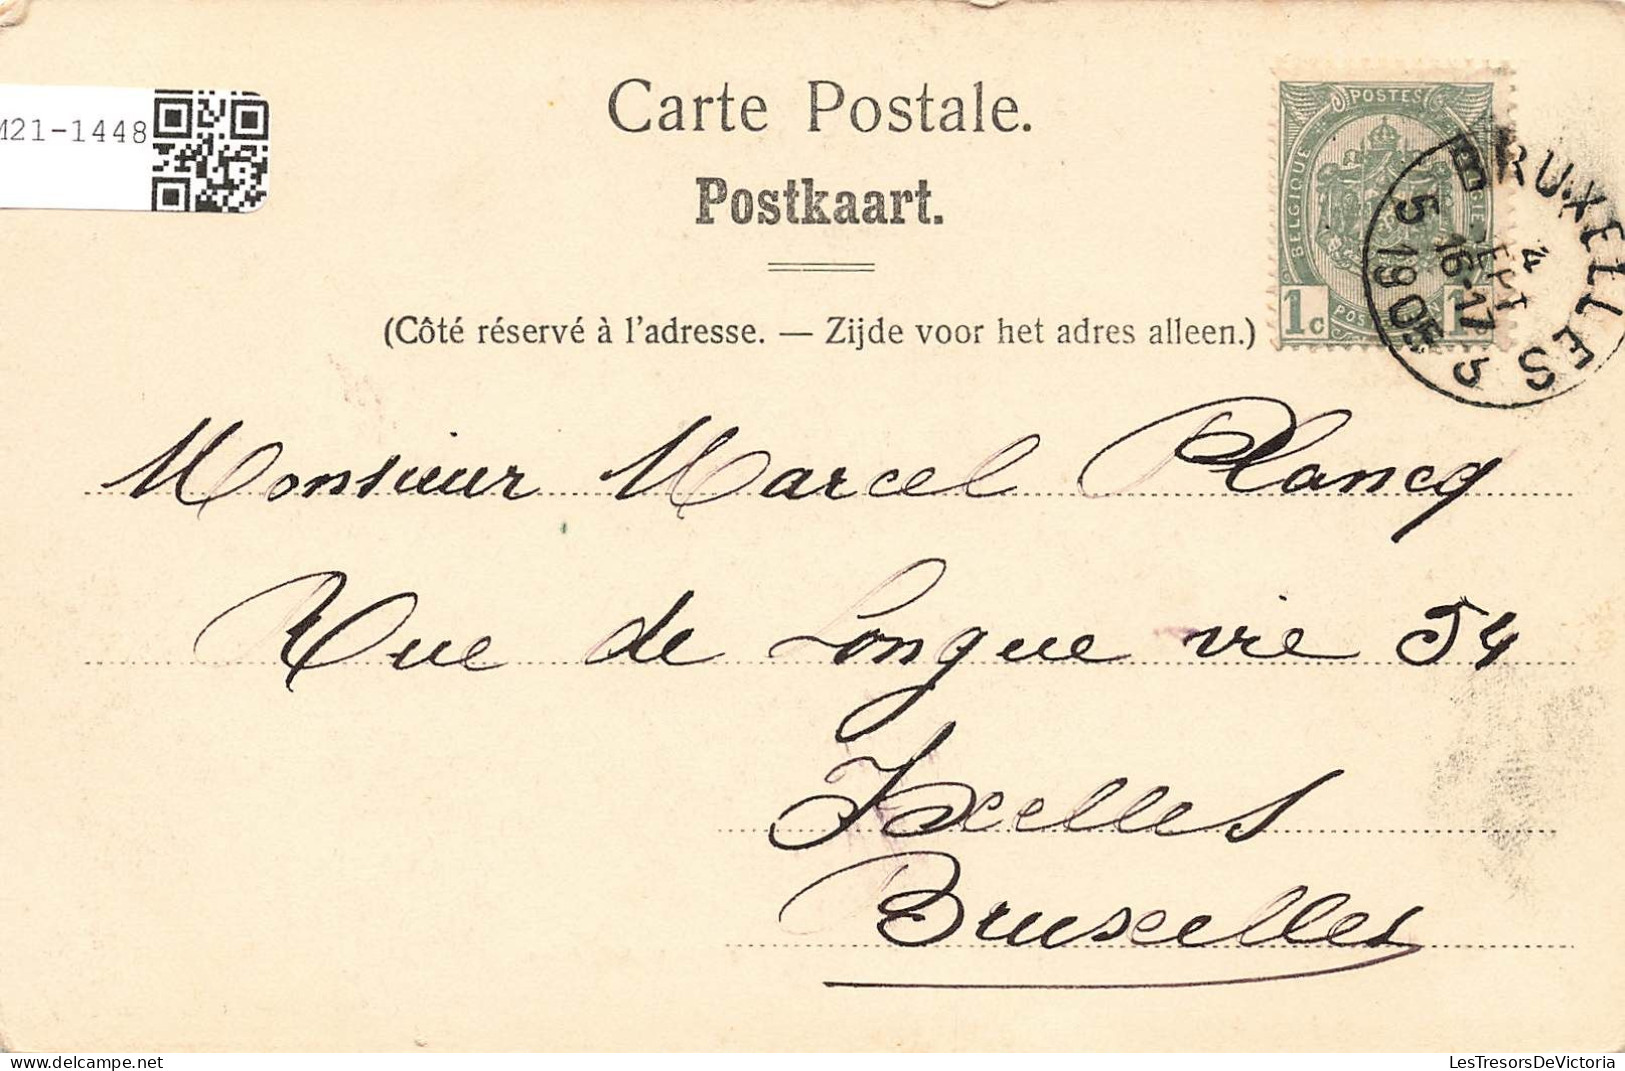 M21-1448
Carte Postale.
Postkaart.
(Côté réservé à l'adresse. — Zijde voor het adres alleen.)
POSTES
BELGIQUE
1c
BRUXELLES 5
4
SEPT
16-17
5 1905
Monsieur Marcel Plancq
Rue de Longue vie 54
Ixelles
Bruxelles
LesTresorsDeVictoria